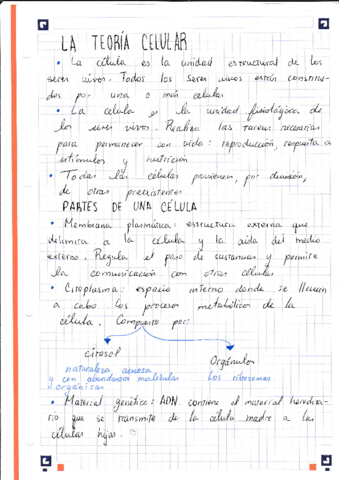 LA TEORÍA CELULAR
• La célula es la unidad estructural de los
seres vivos. Todos los seres vivos están constitui-
dos por una o más células
• La célula es la unidad fisiológica de
los seres vivos. Realiza las tareas necesarias
para permanecer con vida: reproducción, respuesta a
estímulos y nutrición
• Todas las células provienen, por división,
de otras preexistentes
PARTES DE UNA CÉLULA
• Membrana plasmática: estructura externa que
delimita a la célula y la aísla del medio
externo. Regula el paso de sustancias y permite
la comunicación con otras células
• Citoplasma: espacio interno donde se llevan
a cabo los procesos metabólicos de la
célula. Compuesto por:
Citosol Orgánulos
naturaleza acuosa
y con abundantes moléculas los ribosomas
orgánicas
• Material genético: ADN. contiene el material heredita-
rio que se transmite de la célula madre a las
células hijas.